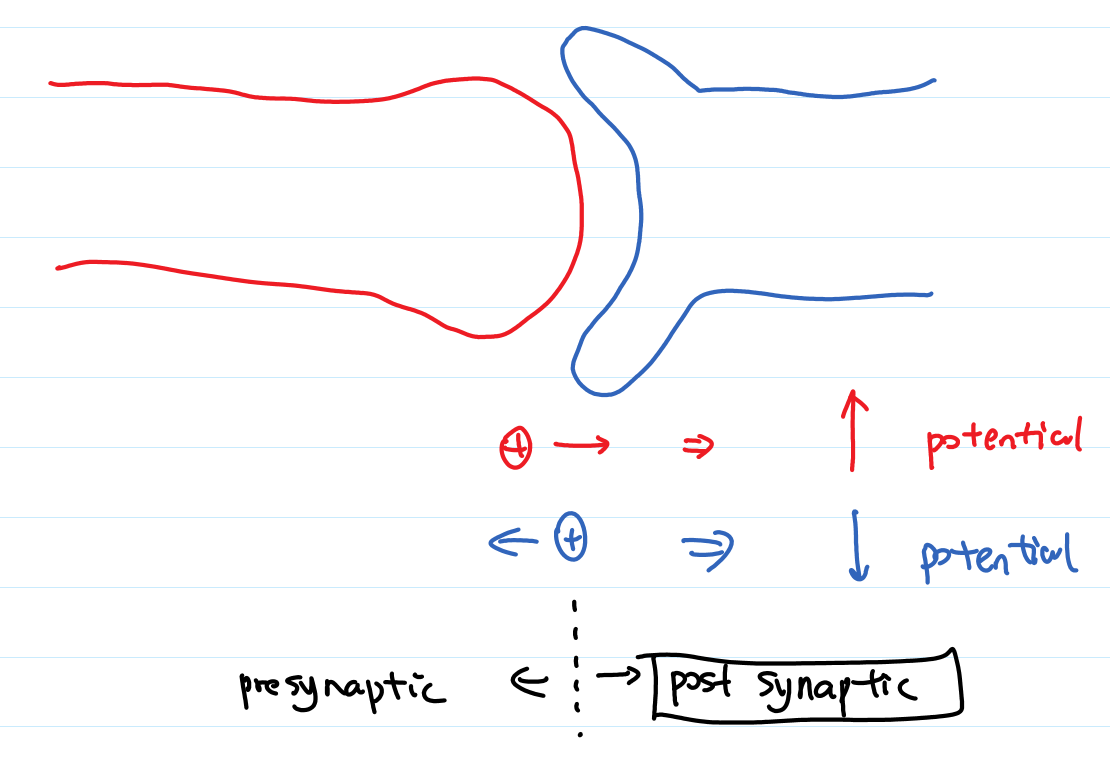 + → ⇒ ↑ potential
← + ⇒ ↓ potential
presynaptic ← → post synaptic